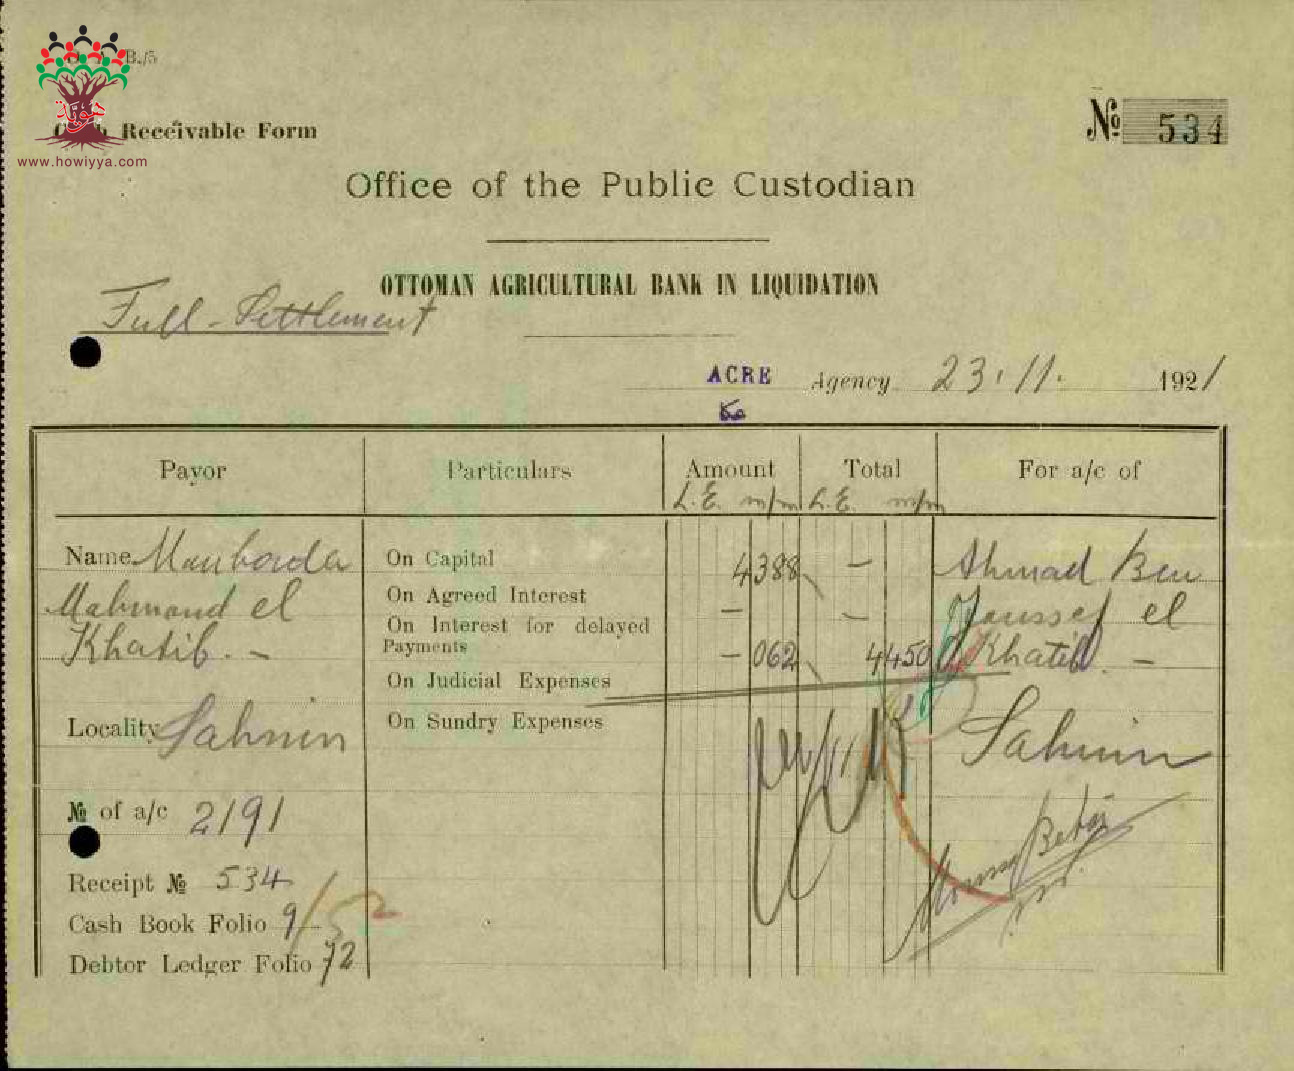 B./5
هوية
www.howiyya.com
Receivable Form
№ 534
Office of the Public Custodian
OTTOMAN AGRICULTURAL BANK IN LIQUIDATION
Full-Settlement
ACRE Agency 23.11. 1921
عكا
Payor Particulars Amount Total For a/c of
L.E. m/m L.E. m/m
Name Mahmoud el Khatib. -
On Capital 4388 -
On Agreed Interest - -
On Interest for delayed
Payments - 062 4450
On Judicial Expenses
On Sundry Expenses
Ahmad Ben
Joussef el
Khatib. -
Locality Sahnin
Sahnin
№ of a/c 2191
Receipt № 534
Cash Book Folio 9/52
Debtor Ledger Folio 72